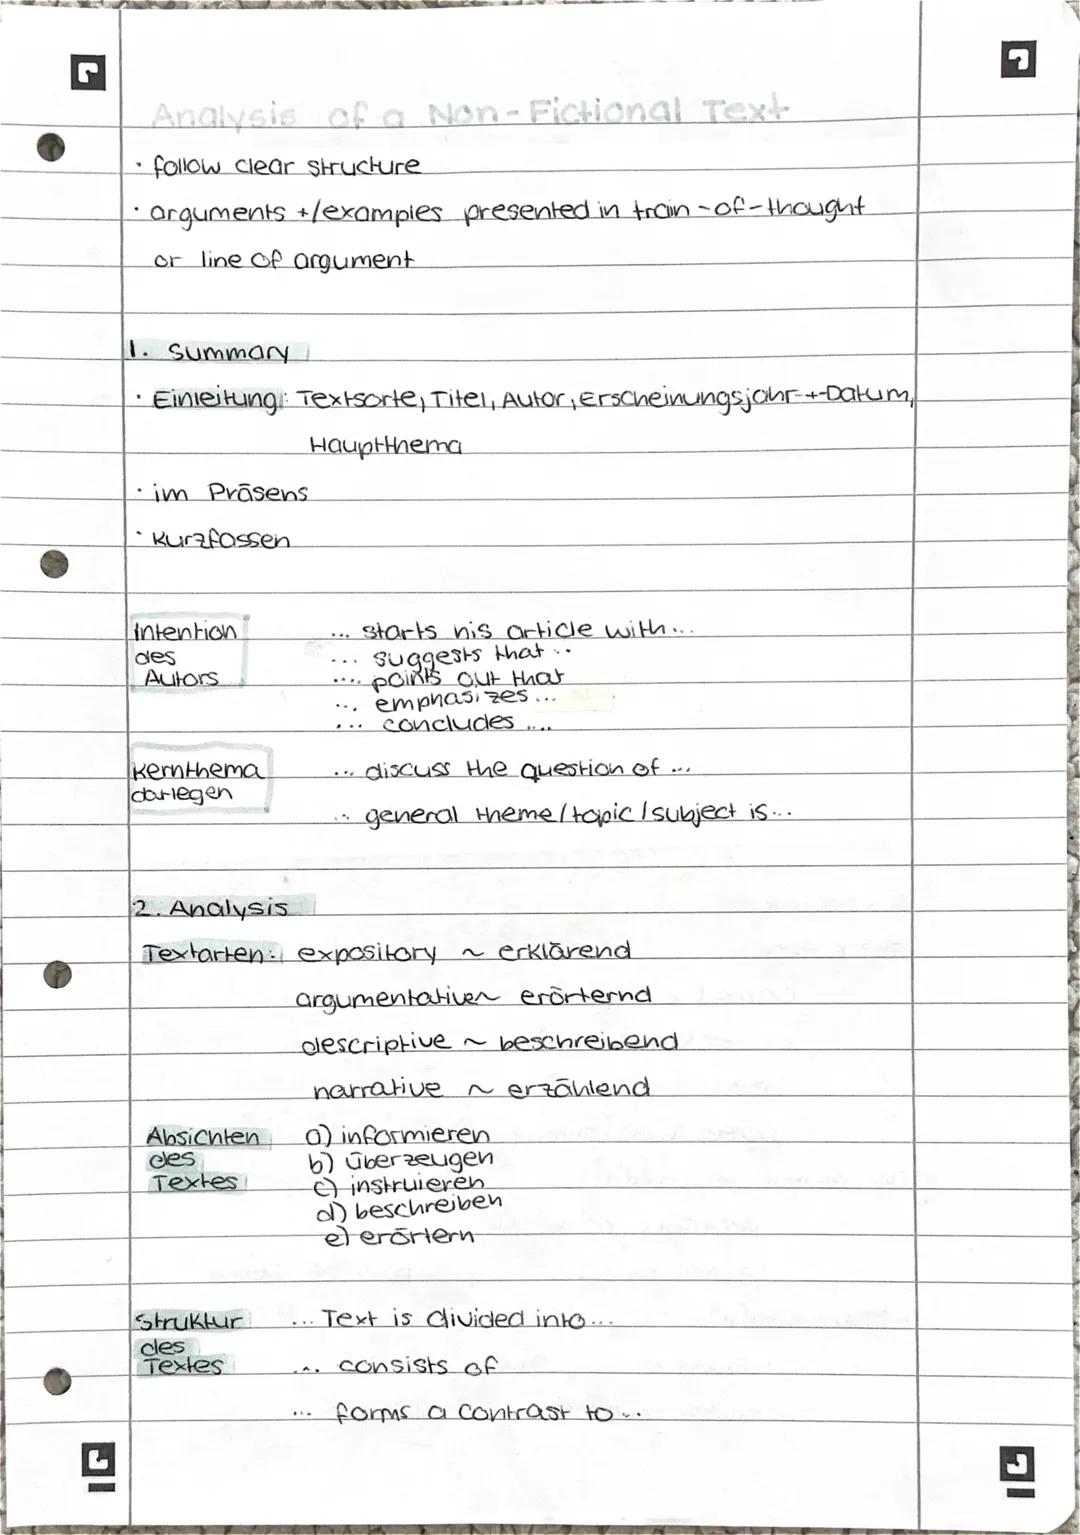 Analysis of a Non-Fictional Text
· follow clear structure
· arguments +/examples presented in train-of-thought
or line of argument
1. Summary
· Einleitung: Textsorte, Titel, Autor, Erscheinungsjahr+Datum,
Hauptthema
· im Präsens
· kurzfassen
Intention des Autors
... starts his article with...
... suggests that ..
.... points out that
... emphasizes ...
... concludes ....
Kernthema darlegen
... discuss the question of ...
... general theme/topic/subject is...
2. Analysis
Textarten: expository ~ erklärend
argumentative ~ erörternd
descriptive ~ beschreibend
narrative ~ erzählend
Absichten des Textes
a) informieren
b) überzeugen
c) instruieren
d) beschreiben
e) erörtern
Struktur des Textes
... Text is divided into...
... consists of
... forms a contrast to...